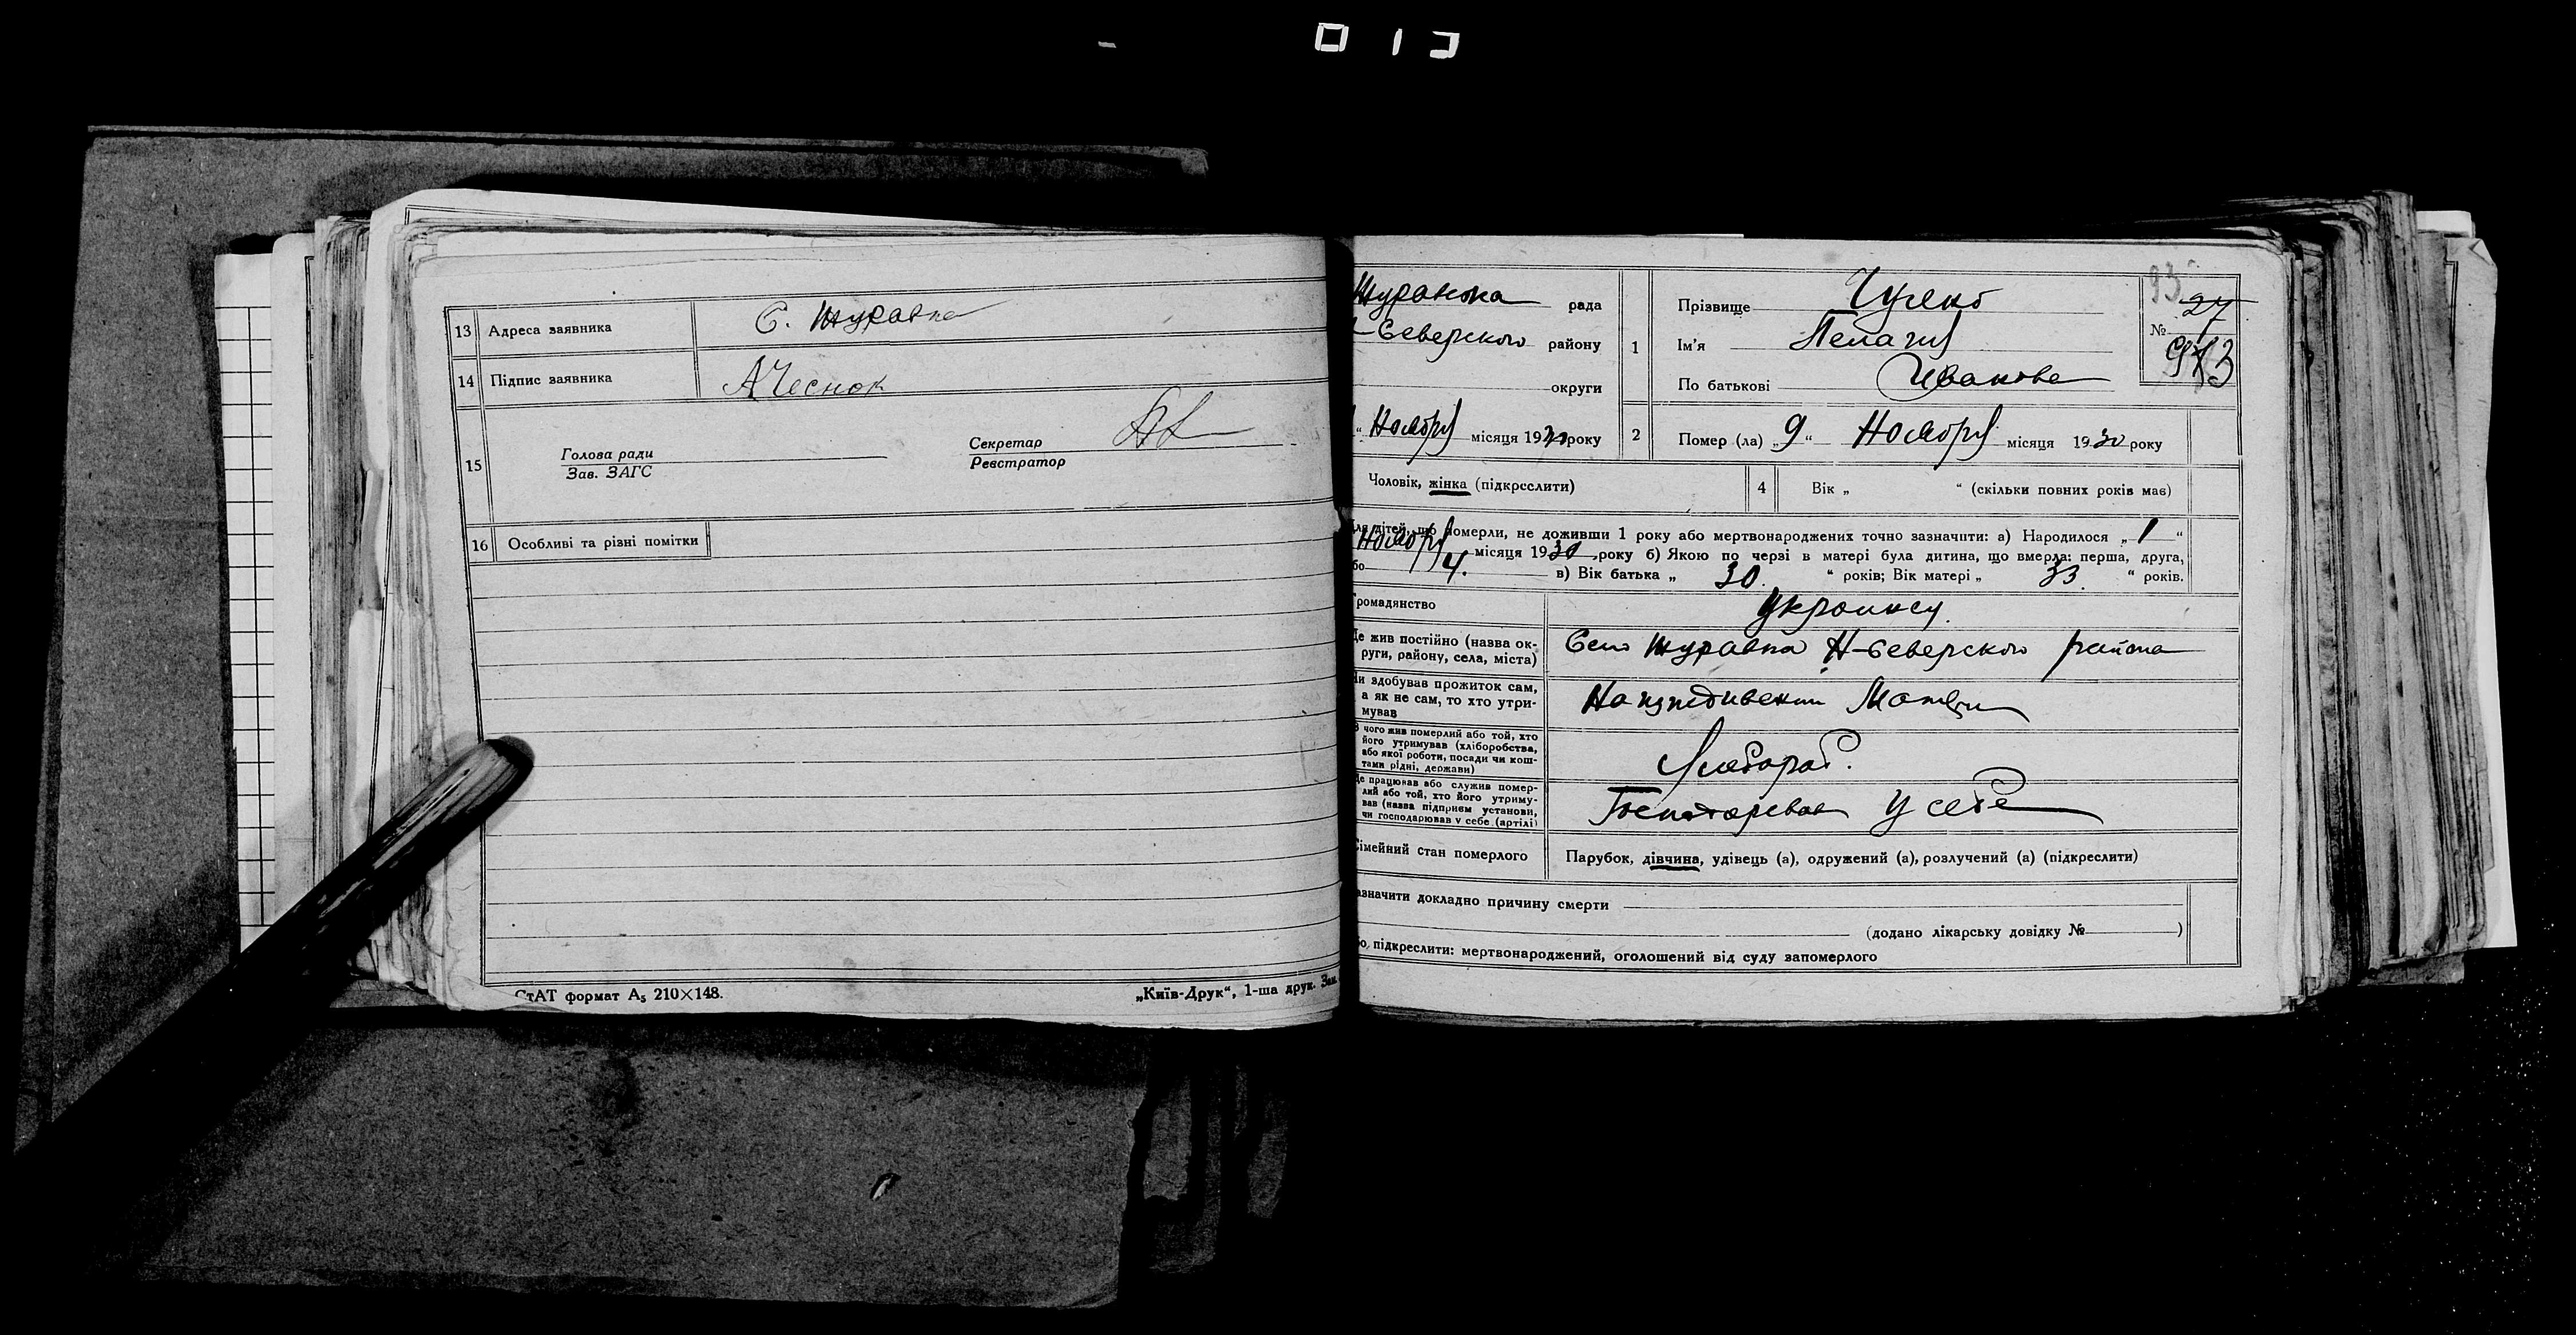 013
13 Адреса заявника С. Журавка
14 Підпис заявника АЧеснок
15 Голова ради
Зав. ЗАГС
Секретар
Реєстратор
16 Особливі та різні помітки
СтАТ формат А5 210×148.
„Київ-Друк“, 1-ша друк. Зам.
рада
-Северского району
округи
“ Ноября місяця 1930 року
1 Прізвище
Ім'я Пелагия
По батькові Ивановна
93
№ 27
2 Помер (ла) „9“ Ноября місяця 1930 року
Чоловік, жінка (підкреслити)
4 Вік „ “ (скільки повних років має)
для дітей, що померли, не доживши 1 року або мертвонароджених точно зазначити: а) Народилося „1“
Ноября місяця 1930 року б) Якою по черзі в матері була дитина, що вмерла: перша, друга,
або 4. в) Вік батька „30.“ років; Вік матері „33“ років.
Громадянство
Де жив постійно (назва округи, району, села, міста) Село Журавка Н-Северского района
Чи здобував прожиток сам,
а як не сам, то хто утри-
мував
З чого жив померлий або той, хто
його утримував (хліборобства,
або якої роботи, посади чи кош-
тами рідні, держави)
Де працював або служив помер-
лий або той, хто його утриму-
вав (назва підприєм установи,
чи господарював у себе (артілі)
у себе
Сімейний стан померлого Парубок, дівчина, удівець (а), одружений (а), розлучений (а) (підкреслити)
Зазначити докладно причину смерти
(додано лікарську довідку № )
або, підкреслити: мертвонароджений, оголошений від суду запомерлого